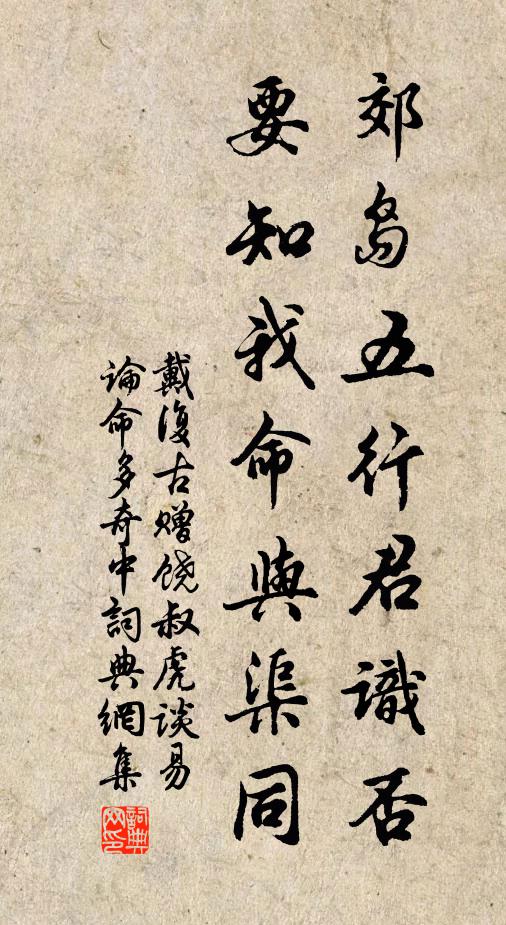 郊島五行君識否
要知我命與渠同
戴復古赠饶叔虎谈易
論命多奇中詞典網集
詞典
网印